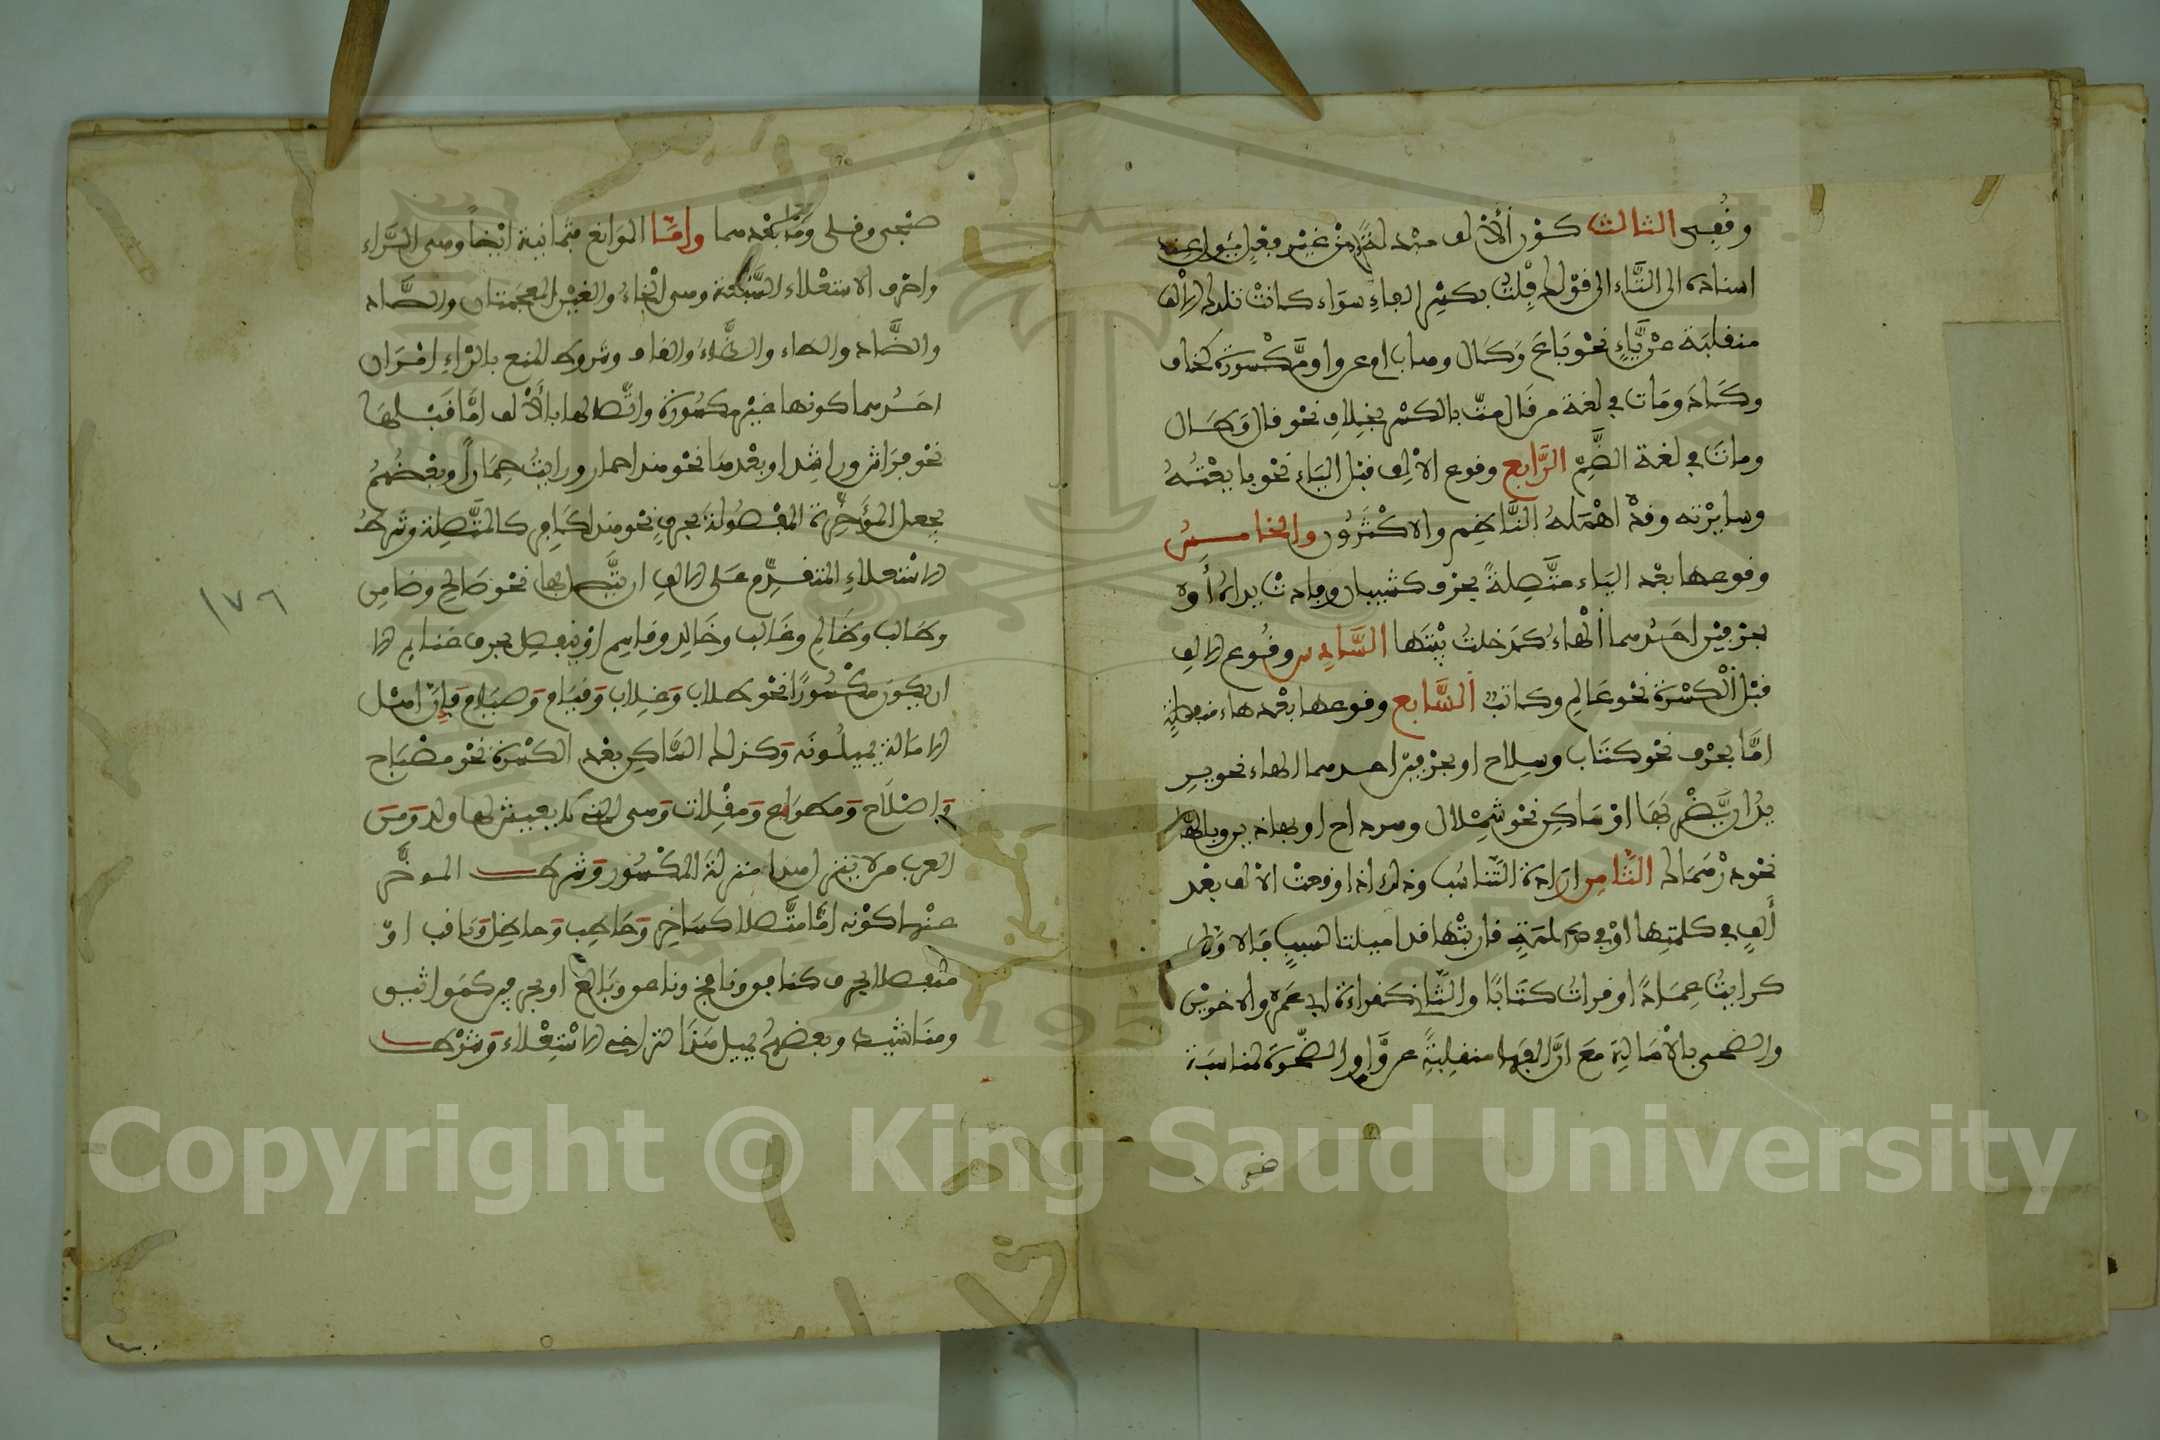 وقُفِى الثالث كون الألف مبدلة من عين فعل يئول عند
اسناده الى التَّاء الى قولك فِلْتُ بكسْر الفاءِ سوَاء كانتْ تلك الالف
منقلبة عن يَّاءٍ نحو بَاعَ وَكَال وهاب ام عن واو مَّكْسورَة كخاف
وكَادَ ومَات في لغة من قال مِتّ بالكسْر بخلافِ نحو قال وَطَال
ومات في لغة الضَّمّ الرَّابع وقوع الالف قبْل اليَاءِ نحو بايعْتُهُ
وسايرْته وقدْ اهْمَلهُ النَّاظم والاكْثَرُون والخامسُ
وقوعها بعْد اليَاء متَّصِلةً او بحرف كشيبان وجادتْ يداه أوْ
بحرفيْن احَدُهما الْهاءُ كدَخلتُ بيْتَها السَّادِس وقُوع الالف
قبْل الْكسْرَة نحْو عَالِم وكاتبٌ السَّابع وقوعها بعْدها منفصلة
امَّا بحرْف نحْو كتَاب وسِلاح او بحرفيْن احدهما الهاء نحو يريد
يدُ ان يَّضْربَهَا اوْ سَاكِن نحْو شِمْلال وسرداح او بهاذين وبالهاء
نحْو درْهَمَاك الثَّامن ارَادة التَّناسُب وذلك اذا وقعتْ الالف بعْد
ألِفٍ في كلمتِها اوْ في كلمَةٍ قارنتْها قد اميلتا لسببٍ فالاوّل
كرايتُ عِمَادًا وقراتُ كتَابًا والثَّاني كقراءة ابي عَمرٍو والاخويْن
والضحى بالامَالة مَعَ انَّ الفَها منقلبةٌ عن وَّاوِ الضَّحْوَة لمناسَبة
ضحى
سجى وقلى وَمَا بعْدهما وامَّا الموَانع فثمانية ايْضًا وهي الرَّاء
واحْرف الاستعْلاء السَّبْعة وهي الْخاءُ والغيْن المعجمَتان والصَّاد
والضَّاد والطاء والظَّاءُ والقاف وشروط المنع بالرَّاءِ امْرَان
احَدُهما كونها غيْر مكسُورَة واتِّصالها بالألْف امَّا قَبْلهَا
نحو فِرَاش وراشد او بعْدهَا نحو هذا حمار ورايتُ حِمَارًا وبعْضُهُمُ
يجعل المُؤخرة المفْصُولة بحرفٍ نحو هذا كَافِر كالمتَّصِلة وشرْطُ
الاسْتعلاءِ المتقدِّم عَلى الالفِ ان يَّتَّصل بها نحو صَالح وضامِن
وطالب وظالِم وغَالب وخَالِد وقاسِم اوْ ينفصل بحرف كغنايم الا
ان يكون مكْسُورًا نحْو طلاب وَغلاب وَقيَام وَصيَام فإنّ اهْل
الامَالة يميلُونه وَكذلك السَّاكن بعْد الكسْرَة نحْو مصْبَاح
وَاصْلاَح وَمطوَاع وَمقْلات وَهي التي لا يعيش لها ولد وَمن
العرب من لا ينزل هذا منزلة المكْسُور وَشرط الموخّر
عنْها كوْنه امَّا متَّصلا كسَاخر وَحَاطب وَحاظل وَنَاقف اوْ
منفصلا بحرف كنافق ونافخ وناعق وبَالغ او بحرفين كمَواثيق
ومنَاشيط وبعضهُم يميل هذا لتراخي الاسْتعْلاء وَشرْط
١٧٦